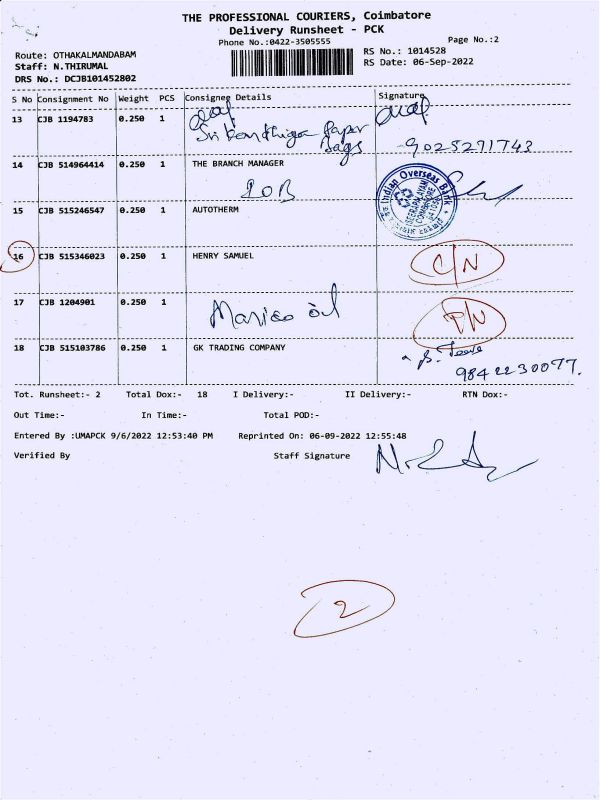 THE PROFESSIONAL COURIERS, Coimbatore
Delivery Runsheet - PCK
Phone No.:0422-3505555
Page No.:2
Route: OTHAKALMANDABAM
RS No.: 1014528
Staff: N.THIRUMAL
RS Date: 06-Sep-2022
DRS No.: DCJB101452802
S No Consignment No Weight PCS Consignee Details Signature
13 CJB 1194783 0.250 1
Paper Bags 9025271743
14 CJB 514964414 0.250 1 THE BRANCH MANAGER
IOB
Indian Overseas Bank
15 CJB 515246547 0.250 1 AUTOTHERM
16 CJB 515346023 0.250 1 HENRY SAMUEL C/N
17 CJB 1204901 0.250 1 Marico oil P/N
18 CJB 515103786 0.250 1 GK TRADING COMPANY
9842230077.
Tot. Runsheet:- 2 Total Dox:- 18 I Delivery:- II Delivery:- RTN Dox:-
Out Time:- In Time:- Total POD:-
Entered By :UMAPCK 9/6/2022 12:53:40 PM Reprinted On: 06-09-2022 12:55:48
Verified By Staff Signature
2